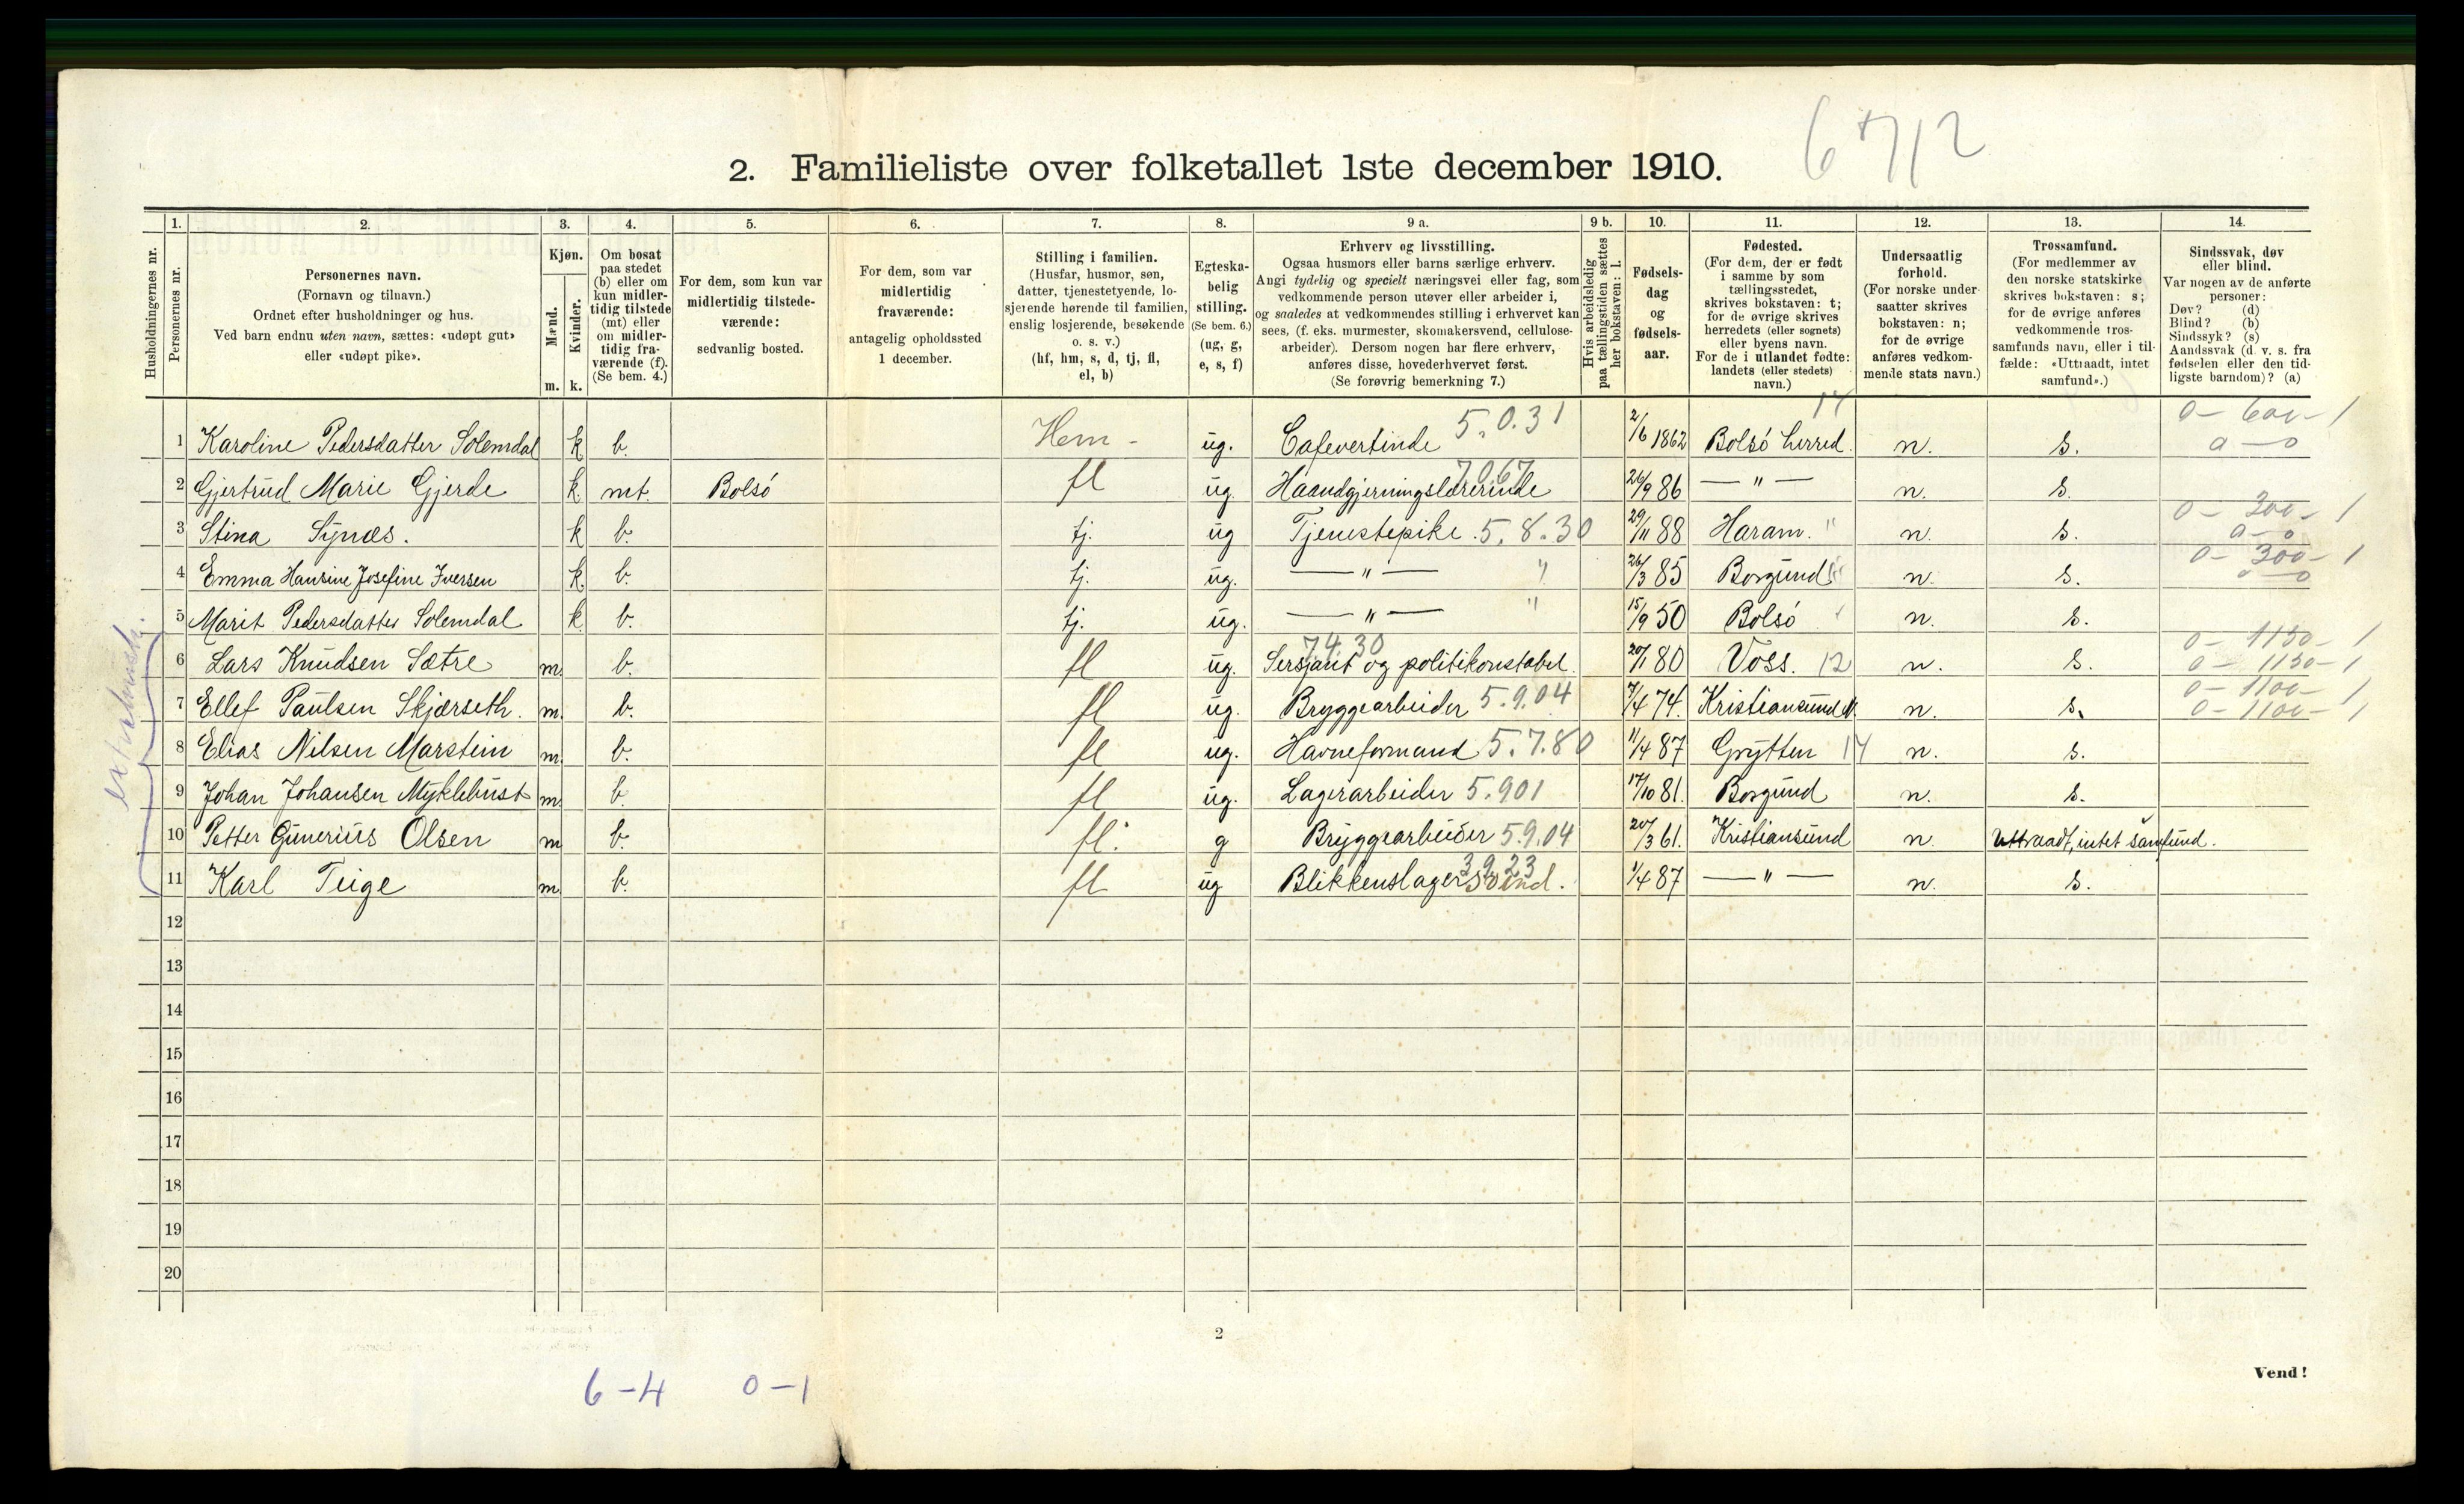 6712
2. Familieliste over folketallet 1ste december 1910.
Husholdningernes nr.
1. Personernes nr.
2. Personernes navn. (Fornavn og tilnavn.) Ordnet efter husholdninger og hus. Ved barn endnu uten navn, sættes: «udøpt gut» eller «udøpt pike».
3. Kjøn. Mænd. m. Kvinder. k.
4. Om bosat paa stedet (b) eller om kun midler-tidig tilstede (mt) eller om midler-tidig fra-værende (f). (Se bem. 4.)
5. For dem, som kun var midlertidig tilstede-værende: sedvanlig bosted.
6. For dem, som var midlertidig fraværende: antagelig opholdssted 1 december.
7. Stilling i familien. (Husfar, husmor, søn, datter, tjenestetyende, lo-sjerende hørende til familien, enslig losjerende, besøkende o. s. v.) (hf, hm, s, d, tj, fl, el, b)
8. Egteska-belig stilling. (Se bem. 6.) (ug, g, e, s, f)
9 a. Erhverv og livsstilling. Ogsaa husmors eller barns særlige erhverv. Angi tydelig og specielt næringsvei eller fag, som vedkommende person utøver eller arbeider i, og saaledes at vedkommendes stilling i erhvervet kan sees, (f. eks. murmester, skomakersvend, cellulose-arbeider). Dersom nogen har flere erhverv, anføres disse, hovederhvervet først. (Se forøvrig bemerkning 7.)
9 b. Hvis arbeidsledig paa tællingstiden sættes her bokstaven: l.
10. Fødsels-dag og fødsels-aar.
11. Fødested. (For dem, der er født i samme by som tællingsstedet, skrives bokstaven: t; for de øvrige skrives herredets (eller sognets) eller byens navn. For de i utlandet fødte: landets (eller stedets) navn.)
12. Undersaatlig forhold. (For norske under-saatter skrives bokstaven: n; for de øvrige anføres vedkom-mende stats navn.)
13. Trossamfund. (For medlemmer av den norske statskirke skrives bokstaven: s; for de øvrige anføres vedkommende tros-samfunds navn, eller i til-fælde: «Uttraadt, intet samfund».)
14. Sindssvak, døv eller blind. Var nogen av de anførte personer: Døv? (d) Blind? (b) Sindssyk? (s) Aandssvak (d. v. s. fra fødselen eller den tid-ligste barndom)? (a)
1 Karoline Pedersdatter Solemdal k b. Hem - ug. Cafevertinde 5.0.31 2/6 1862 Bolsö herred. 14 n. s. 0 - 600 - 1 0 - 0
2 Gjertrud Marie Gjerde k. mt. Bolsö fl ug. Haandgjerningslærerinde 7.0.67 26/9 86 — " — n. s.
3 Stina Synæs. k b. tj. ug Tjenestepike. 5.8.30 29/11 88 Haram. " n. s. 0 - 200 - 1 0 - 0
4 Emma Hansine Josefine Iversen k. b. tj. ug. — " — " 26/3 85 Borgund " n. s. 0 - 300 - 1 0 - 0
5 Marit Pedersdatter Solemdal k. b. tj. ug. — " — " 15/9 50 Bolsö n. s.
6 Lars Knudsen Sætre m. b. fl ug. Sersjant og politikonstabel. 7.4.30 20/1 80 Voss. 12 n. s. 0 - 1150 - 1 0 - 1150 - 1
7 Ellef Paulsen Skjærseth. m. b. fl ug. Bryggearbeider 5.9.04 7/4 74. Kristiansund N. n. s. 0 - 1100 - 1 0 - 1100 - 1
8 Elias Nilsen Marstein m. b. fl ug. Havneformand 5.7.80 11/4 87 Grytten 14 n. s.
9 Johan Johansen Myklebust m. b. fl ug. Lagerarbeider 5.901 17/10 81. Borgund n. s.
10 Petter Gunerius Olsen m b. fl. g Bryggearbeider 5.9.04 20/3 61. Kristiansund n. Uttraadt, intet samfund.
11 Karl Teige m b. fl ug Blikkenslagersvend. 3.9.23 1/4 87 — " — n. s.
12
13
14
15
16
17
18
19
20
2
Vend!
6-4 0-1